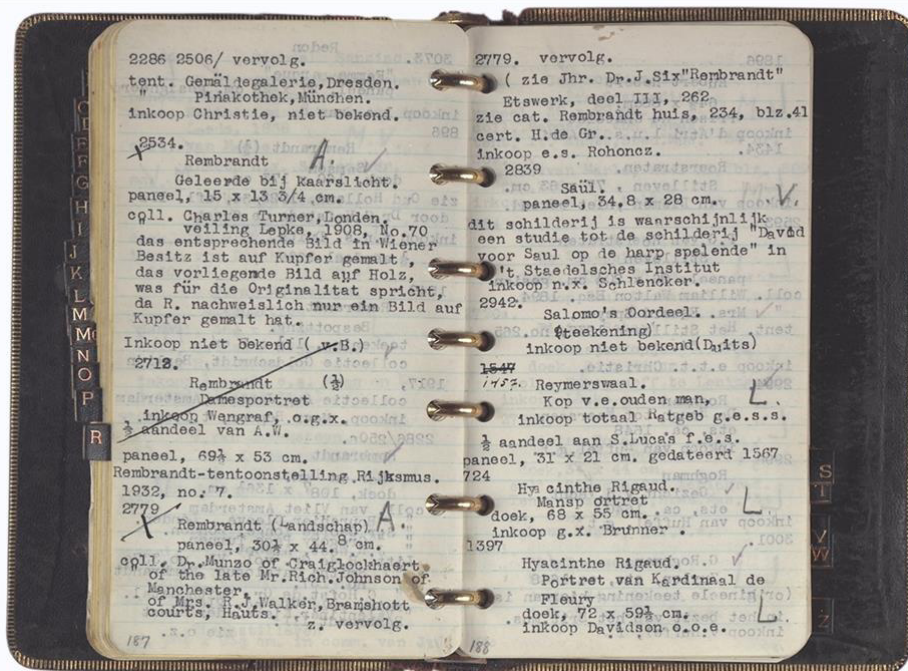 2286 2506/ vervolg.
tent. Gemäldegalerie,Dresden.
" Pinakothek,München.
inkoop Christie, niet bekend.
2534.
X
Rembrandt A.
Geleerde bij kaarslicht.
paneel, 15 x 13 3/4 cm.
coll. Charles Turner,Londen.
veiling Lepke, 1908, No.70
das entsprechende Bild in Wiener
Besitz ist auf Kupfer gemalt,
das vorliegende Bild auf Holz,
was für die Originalität spricht,
da R. nachweislich nur ein Bild auf
Kupfer gemalt hat.
Inkoop niet bekend ( v.B.)
2712.
Rembrandt (½)
Damesportret
inkoop Wengraf, o.g.x.
½ aandeel van A.W.
paneel, 69½ x 53 cm.
Rembrandt-tentoonstelling Rijksmus.
1932, no. 7.
2779
X
Rembrandt (Landschap) A.
paneel, 30½ x 44.8 cm.
coll. Dr.Munzo of Craiglockhaert
of the late Mr.Rich.Johnson of
Manchester,
of Mrs. R.J.Walker,Bramshott
courts, Hauts.
z. vervolg.
187
2779. vervolg.
( zie Jhr. Dr.J.Six"Rembrandt"
Etswerk, deel III, 262
zie cat. Rembrandt huis, 234, blz.41
cert. H.de Gr..
inkoop e.s. Rohoncz.
2839
Saül.
paneel, 34,8 x 28 cm. V.
dit schilderij is waarschijnlijk
een studie tot de schilderij "David
voor Saul op de harp spelende" in
't Staedelsches Institut
inkoop n.x. Schlencker.
2942.
Salomo's Oordeel.
(teekening)
inkoop niet bekend(Duits)
1547
1457. Reymerswaal.
Kop v.e.ouden man, L.
inkoop totaal Ratgeb g.e.s.s.
½ aandeel aan S.Lucas f.e.s.
paneel, 31 x 21 cm. gedateerd 1567
724
Hya cinthe Rigaud.
Mansp ortret L
doek, 68 x 55 cm.
inkoop g.x. Brunner .
1397
Hyacinthe Rigaud.
Portret van Kardinaal de
Fleury
doek, 72 x 59½ cm. L
inkoop Davidson o.o.e.
188
C
D
E
F
G
H
I
J
K
L
M
Mc
N
O
P
R
S
T
V
W
Z